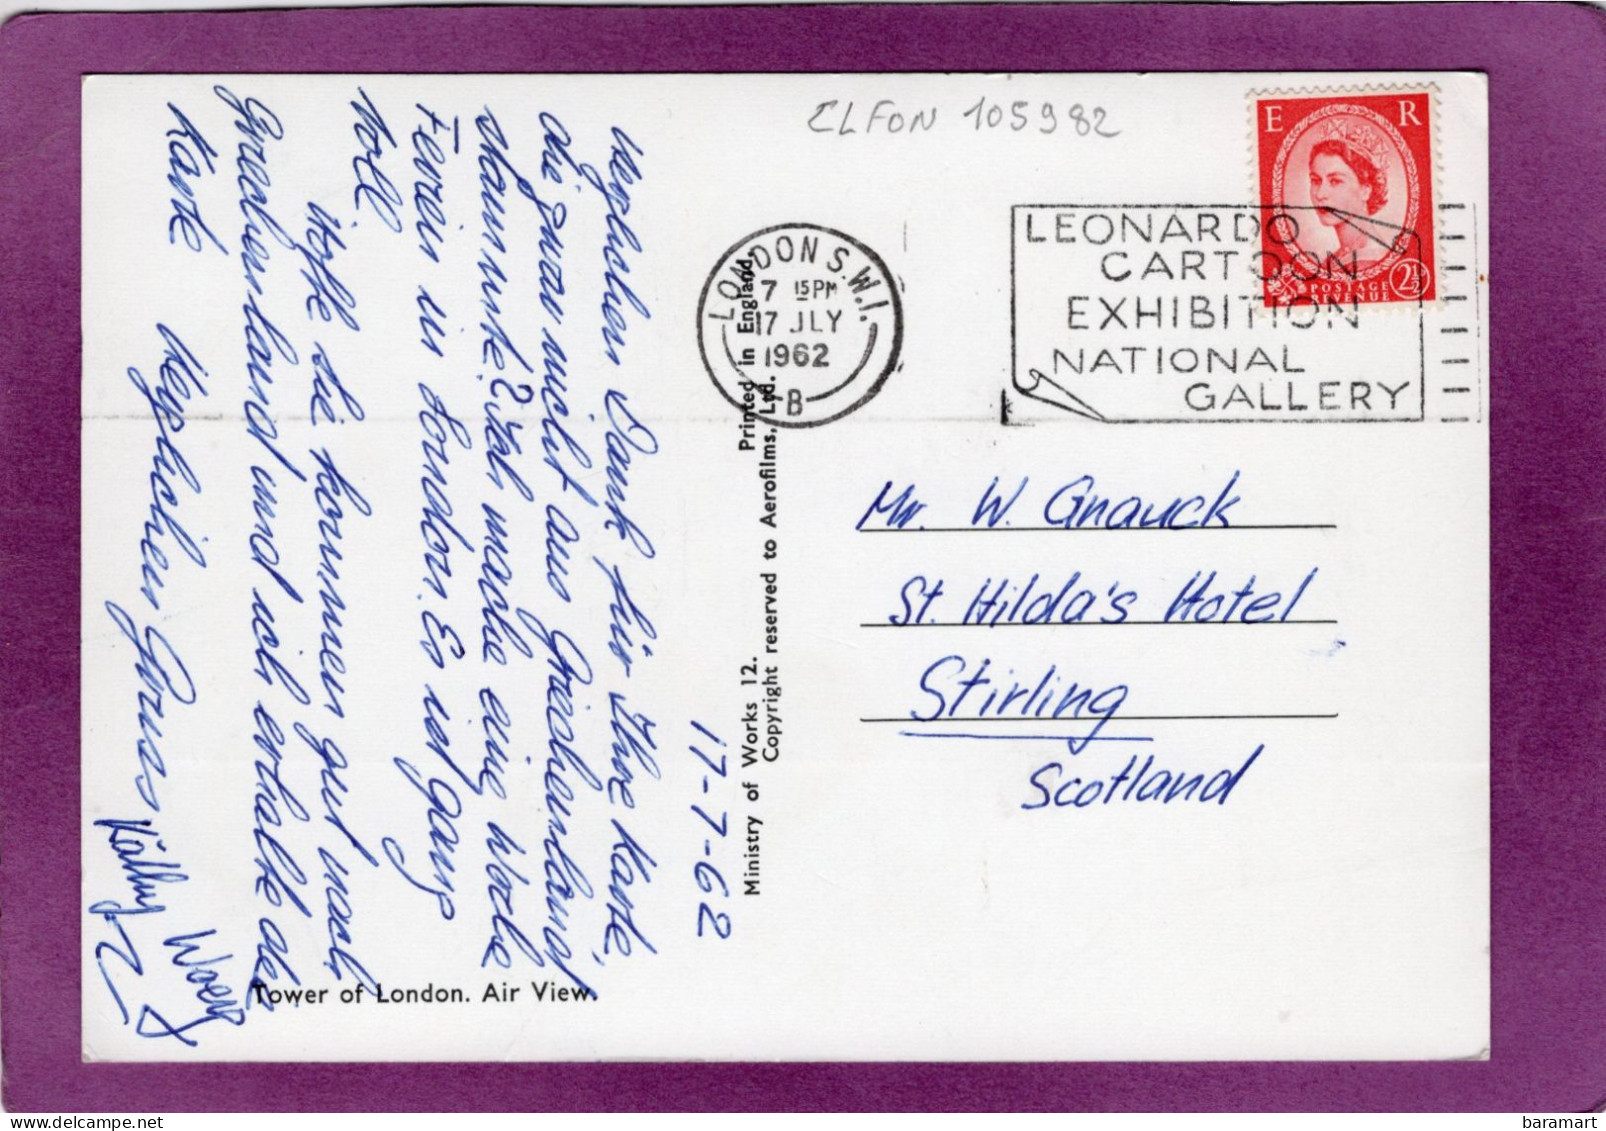 CLFON 105982
E R
2½
POSTAGE
REVENUE
LONDON S.W.1.
7 15 PM
17 JLY
1962
B
LEONARDO
CARTOON
EXHIBITION
NATIONAL
GALLERY
17-7-62
Herzlichen Dank für Ihre Karte,
die zwar nicht aus Griechenland
stammte. Ich mache eine Woche
Ferien in London. Es ist ganz
toll.
Hoffe Sie kommen gut nach
Griechenland und ich erhalte die
Karte
Herzlichen Gruss
Printed in England.
Ministry of Works 12.
Copyright reserved to Aerofilms, Ltd.
Mr. W. Gnauck
St. Hilda's Hotel
Stirling
Scotland
Tower of London. Air View.
baramart